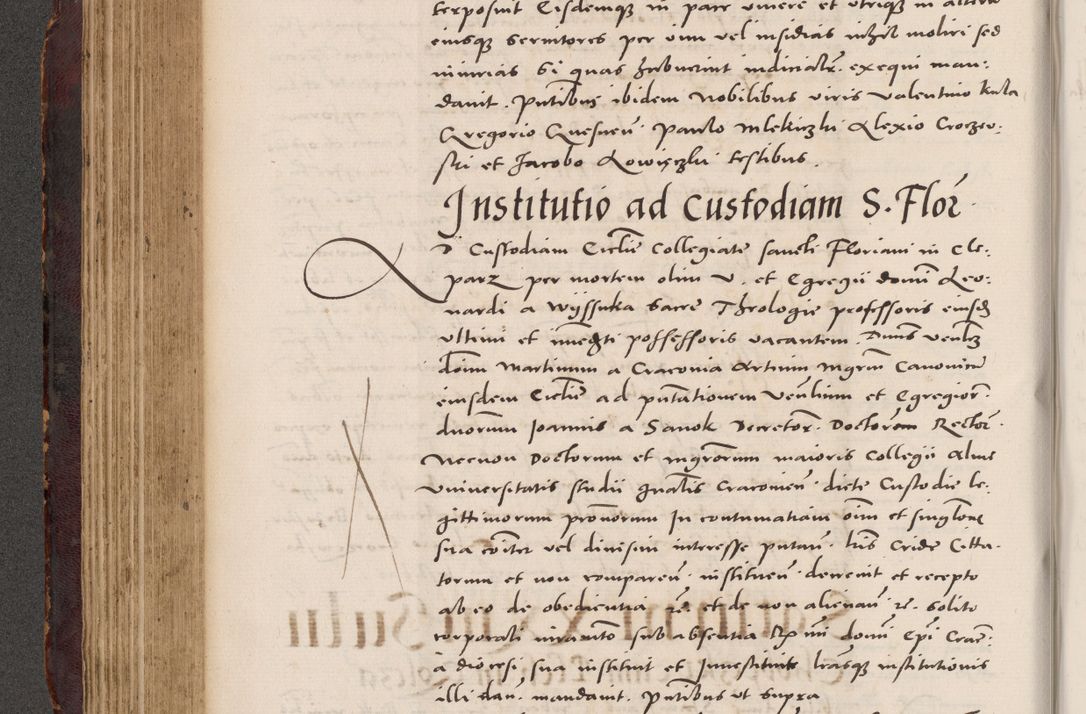 terposuit Eisdemq3 in pace vivere et utriq3 in alteru
eiusq3 servitores per vim vel insidias nihil moliri sed
iniurias si quas habuerint iudicialr. exequi man:
davit. Pntibus ibidem Nobilibus viris Valentino Kula
Gregorio Quesneū Paulo Mlekiczki Alexio Croczow:
ski et Jacobo Lowięczki testibus.
Institutio ad Custodiam S. Flor.
Ad Custodiam Ecclie Collegiate sancti Floriani in Cle:
parz per mortem olim V. et Egregii domi Leo:
nardi a Wyssuka Sacre Theologie professoris eiusd
ultimi et immedti possessoris vacantem. Duns venlis
dom Martinum a Cracovia Artium Mgrm Canonicu
eiusdem Ecclie ad pntationem Venlium et Egregior.
duorum Joannis a Sanok Decretor. Doctorem Rector.
Necnon Doctorum et mgrorum maioris Collegii Alme
Universitatis studii gnalis Cracovien. dicte Custodie le:
gittimorum pronorum In contumatiam oim et singlorum
sua coiter vel divisim interesse putan. lris Cride Citta:
torum et non comparen. instituen. decrevit et recepto
ab eo de obedientia rc et de non alienan. rc. solito
corporali iuramto sub absentia Rx mi domi Epi Crac.
a diocesi sua instituit et Investivit lrasq3 institutionis
illi dan. mandavit. Pntibus ut supra